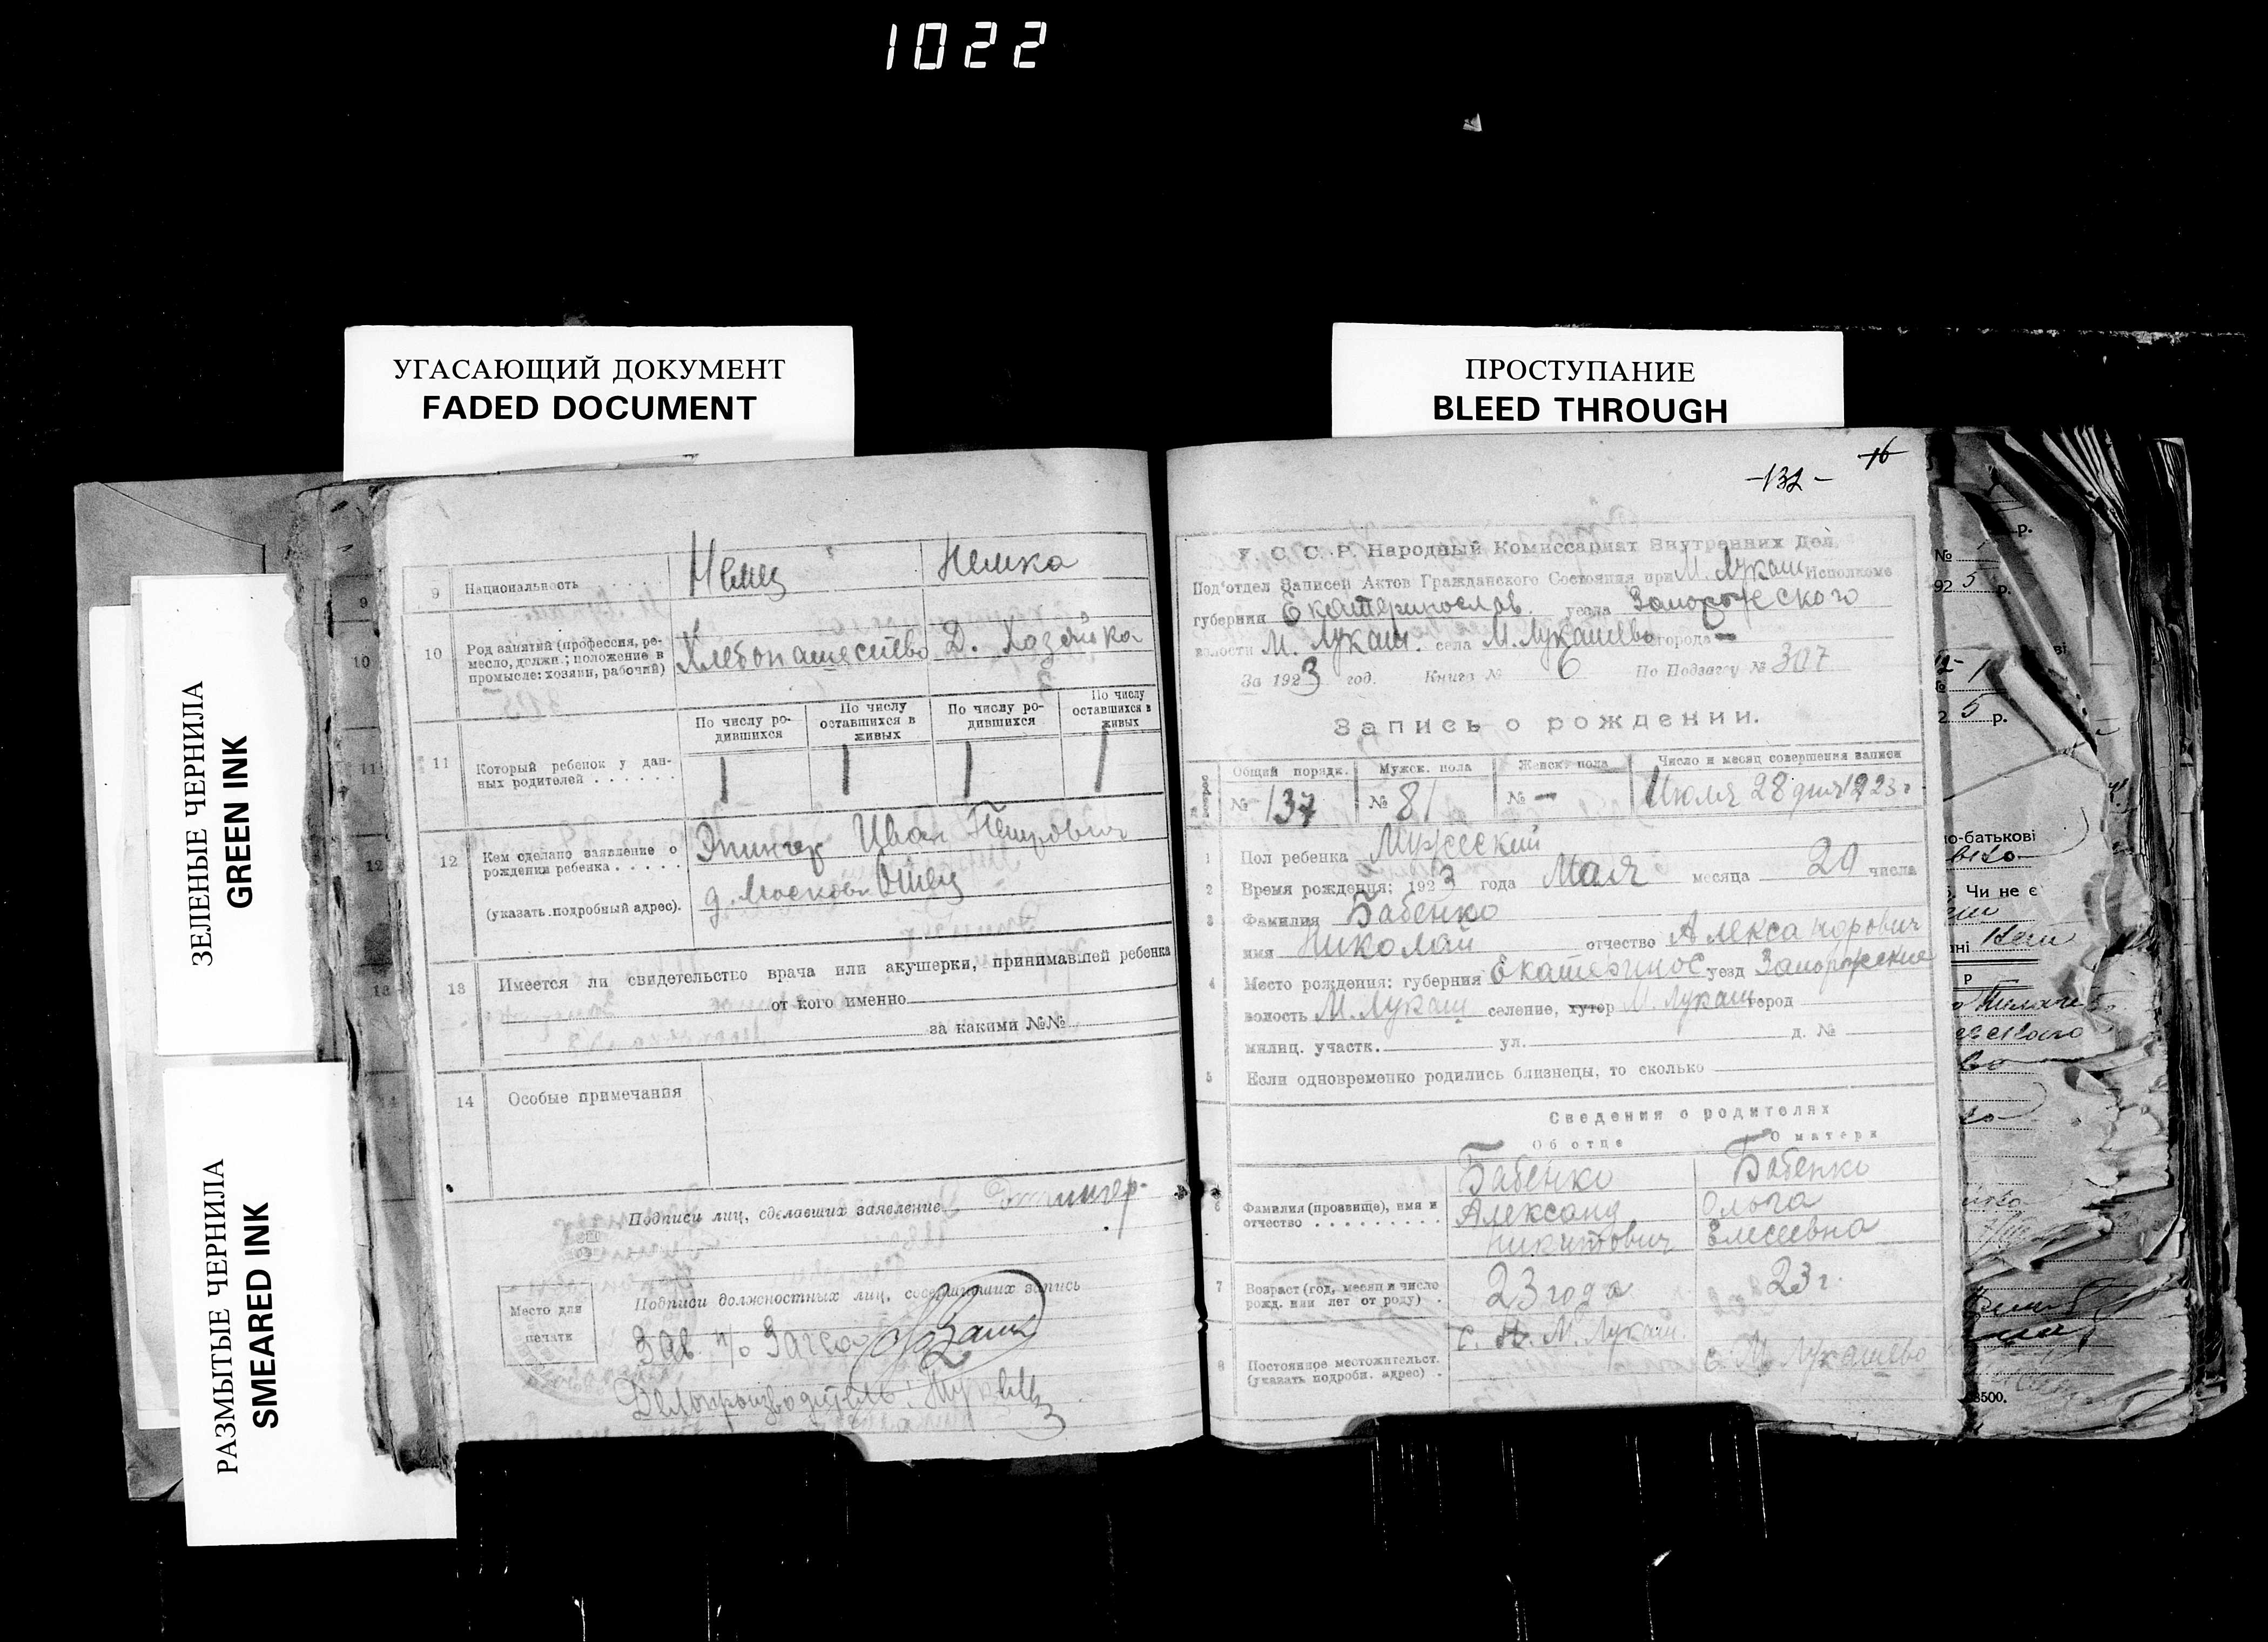 1022
УГАСАЮЩИЙ ДОКУМЕНТ
FADED DOCUMENT
ПРОСТУПАНИЕ
BLEED THROUGH
ЗЕЛЕНЫЕ ЧЕРНИЛА
GREEN INK
РАЗМЫТЫЕ ЧЕРНИЛА
SMEARED INK
9 Национальность Немец Немка
10 Род занятий (профессия, ре-
месло, должн.; положение в
промысле: хозяин, рабочий) Хлебопашество Д. Хозяйка
По числу ро-
дившихся
По числу
оставшихся в
живых
По числу ро-
дившихся
По числу
оставшихся в
живых
11 Который ребенок у дан-
ных родителей 1 1 1 1
12 Кем сделано заявление о
рождении ребенка
(указать подробный адрес).
Эпингер Иван Петрович
Отец
13 Имеется ли свидетельство врача или акушерки, принимавшей ребенка
от кого именно
за какими №№
14 Особые примечания
Подписи лиц, сделавших заявление
Место для
печати
Подписи должностных лиц, совершивших запись
Зав. п/о Загса
Делопроизводитель:
-132-
16
У. С. С. Р. Народный Комиссариат Внутренних Дел.
Под'отдел Записей Актов Гражданского Состояния при М. Лукаш Исполкоме
губернии Екатеринослав. уезда Запорожского
волости М. Лукаш. села М. Лукашево города —
За 1923 год. Книга № 6 По Подзагсу № 307
Запись о рождении.
Общий порядк. Мужск. пола Женск. пола Число и месяц совершения записи
№ 137 № 81 № — Июля 28 дня 1923 г
1 Пол ребенка Мужеский
2 Время рождения: 1923 года Мая месяца 29 числа
3 Фамилия Бабенко
имя Николай отчество Александрович
4 Место рождения: губерния Екатеринос уезд Запорожские
волость М. Лукаш селение, хутор М. Лукаш город
милиц. участк. ул. д. №
5 Если одновременно родились близнецы, то сколько
Сведения о родителях
Об отце О матери
6 Фамилия (прозвище), имя и
отчество
Бабенко
Александ
Никитович
Бабенко
Ольга
Елесеевна
7 Возраст (год, месяц и число
рожд. или лет от роду) 23 года 23 г.
8 Постоянное местожительст.
(указать подробн. адрес)
с. М. Лукаш.
с. М. Лукашево
р.
№
92 5 р.
2 5 р.
по-батькові
Чи не є
3500.